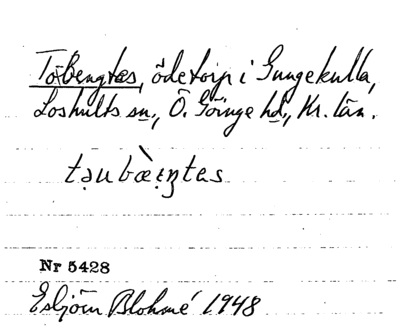 Tobengtas, ödetorp i Gungekulla,
Loshults sn., Ö. Göinge hd., Kr. län.
tạubæ̀ıŋtas
Nr 5428
Esbjörn Blohmé 1948